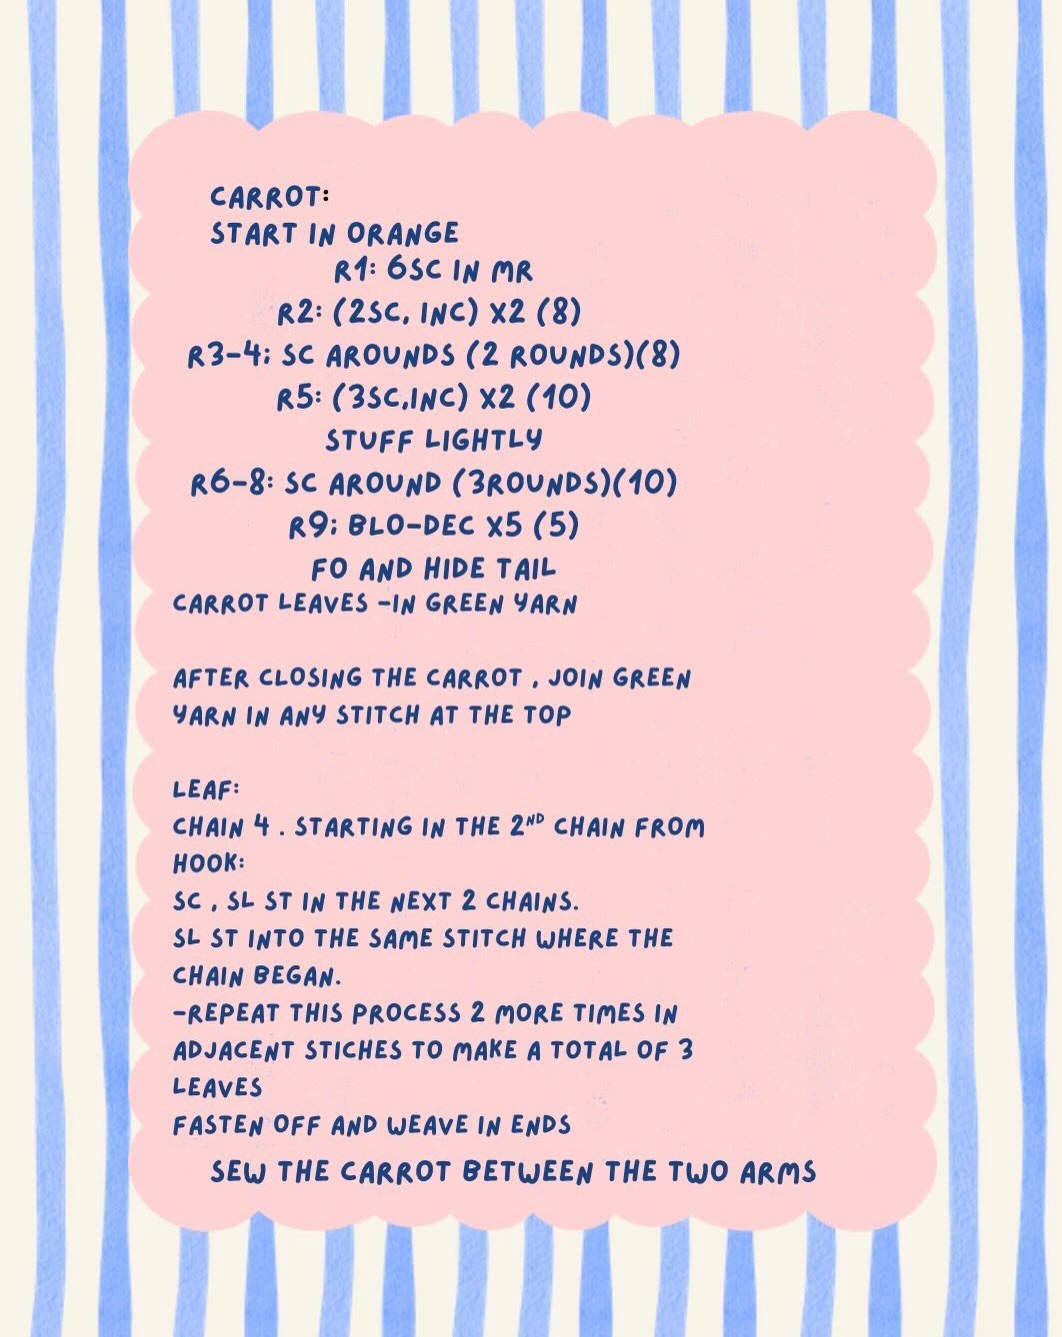 CARROT:
START IN ORANGE
R1: 6SC IN MR
R2: (2SC, INC) X2 (8)
R3-4; SC AROUNDS (2 ROUNDS)(8)
R5: (3SC,INC) X2 (10)
STUFF LIGHTLY
R6-8: SC AROUND (3ROUNDS)(10)
R9; BLO-DEC X5 (5)
FO AND HIDE TAIL
CARROT LEAVES -IN GREEN YARN
AFTER CLOSING THE CARROT , JOIN GREEN
YARN IN ANY STITCH AT THE TOP
LEAF:
CHAIN 4 . STARTING IN THE 2ND CHAIN FROM
HOOK:
SC , SL ST IN THE NEXT 2 CHAINS.
SL ST INTO THE SAME STITCH WHERE THE
CHAIN BEGAN.
-REPEAT THIS PROCESS 2 MORE TIMES IN
ADJACENT STICHES TO MAKE A TOTAL OF 3
LEAVES
FASTEN OFF AND WEAVE IN ENDS
SEW THE CARROT BETWEEN THE TWO ARMS